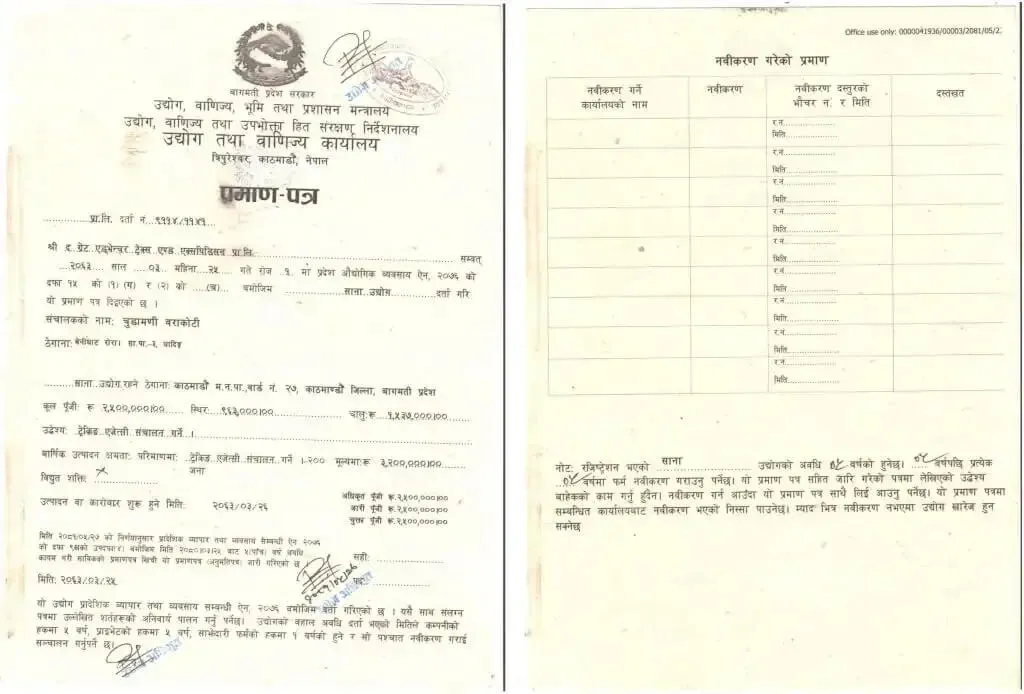 बागमती प्रदेश सरकार
उद्योग, वाणिज्य, भूमि तथा प्रशासन मन्त्रालय
उद्योग, वाणिज्य तथा उपभोक्ता हित संरक्षण निर्देशनालय
उद्योग तथा वाणिज्य कार्यालय
त्रिपुरेश्वर, काठमाडौं, नेपाल
प्रमाण-पत्र
..............प्रा.लि. दर्ता नं...९११४/११४१...
श्री द ग्रेट एड्भेन्चर ट्रेक्स एण्ड एक्सपिडिसन प्रा.लि. सम्वत्
...२०६३.... साल ....०३.. महिना...२५... गते रोज ..१.. मा प्रदेश औद्योगिक व्यवसाय ऐन, २०७६ को
दफा १५ को (१) (ग) र (२) को ....(ख)... बमोजिम ...............साना उद्योग............दर्ता गरि
यो प्रमाण पत्र दिइएको छ ।
संचालकको नाम: चुडामणी बराकोटी
ठेगाना: बेनीघाट रोराङ्ग गा.पा.-३, धादिङ
.........साना उद्योग रहने ठेगाना: काठमाडौं म.न.पा.,वार्ड नं. २७, काठमाण्डौं जिल्ला, बागमती प्रदेश
कूल पूँजी: रू २,५००,०००।००...... स्थिर:...९६३,०००।००.................... चालु:रू....१,५३७,०००।००....
उद्देश्य: ट्रेकिङ एजेन्सी संचालन गर्ने ।
वार्षिक उत्पादन क्षमता: परिमाणमा: ..ट्रेकिङ एजेन्सी संचालन गर्ने ।-२०० मूल्यमा:रू ३,२००,०००।००
जना
विद्युत शक्ति: ..................
उत्पादन वा कारोवार शुरू हुने मिति: २०६३/०३/२६
अधिकृत पूँजी रू.२,५००,०००।००
जारी पूँजी रू.२,५००,०००।००
चुक्ता पूँजी रू.२,५००,०००।००
मिति २०८१/०५/२७ को निर्णयानुसार प्रादेशिक व्यापार तथा व्यवसाय सम्बन्धी ऐन २०७६
को दफा
बमोजिम मिति २०८०/०३/२५ बाट ५(पाँच) वर्ष अवधि
कायम गरी साविकको प्रमाणपत्र खिची यो प्रमाणपत्र (अनुमतिपत्र) जारी गरिएको छ ।
सही:
मिति: २०६३/०३/२५
पद:
यो उद्योग प्रादेशिक व्यापार तथा व्यवसाय सम्बन्धी ऐन, २०७६ बमोजिम दर्ता गरिएको छ । यसै साथ संलग्न
पत्रमा उल्लेखित शर्तहरूको अनिवार्य पालन गर्नु पर्नेछ। उद्योगको वहाल अवधि दर्ता भएको मितिले कम्पनीको
हकमा ५ वर्ष, प्राइभेटको हकमा ५ वर्ष, साझेदारी फर्मको हकमा १ वर्षको हुने र सो पश्चात नवीकरण गराई
सञ्चालन गर्नुपर्ने छ।
Office use only: 0000041936/00003/2081/05/2
नवीकरण गरेको प्रमाण
नवीकरण गर्ने कार्यालयको नाम
नवीकरण
नवीकरण दस्तुरको भौचर नं. र मिति
दस्तखत
र.नं...................
मिति...................
र.नं...................
मिति...................
र.नं...................
मिति...................
र.नं...................
मिति...................
र.नं...................
मिति...................
र.नं...................
मिति...................
र.नं...................
मिति...................
र.नं...................
मिति...................
र.नं...................
मिति...................
नोट: रजिष्ट्रेशन भएको साना ........................ उद्योगको अवधि ०५ वर्षको हुनेछ। ०५ वर्षपछि प्रत्येक
..०५ वर्षमा फर्म नवीकरण गराउनु पर्नेछ। यो प्रमाण पत्र सहित जारि गरेको पत्रमा लेखिएको उद्देश्य
बाहेकको काम गर्नु हुदैन। नवीकरण गर्न आउँदा यो प्रमाण पत्र साथै लिई आउनु पर्नेछ। यो प्रमाण पत्रमा
सम्बन्धित कार्यालयबाट नवीकरण भएको निस्सा पाउनेछ। म्याद भित्र नवीकरण नभएमा उद्योग खारेज हुन
सक्नेछ